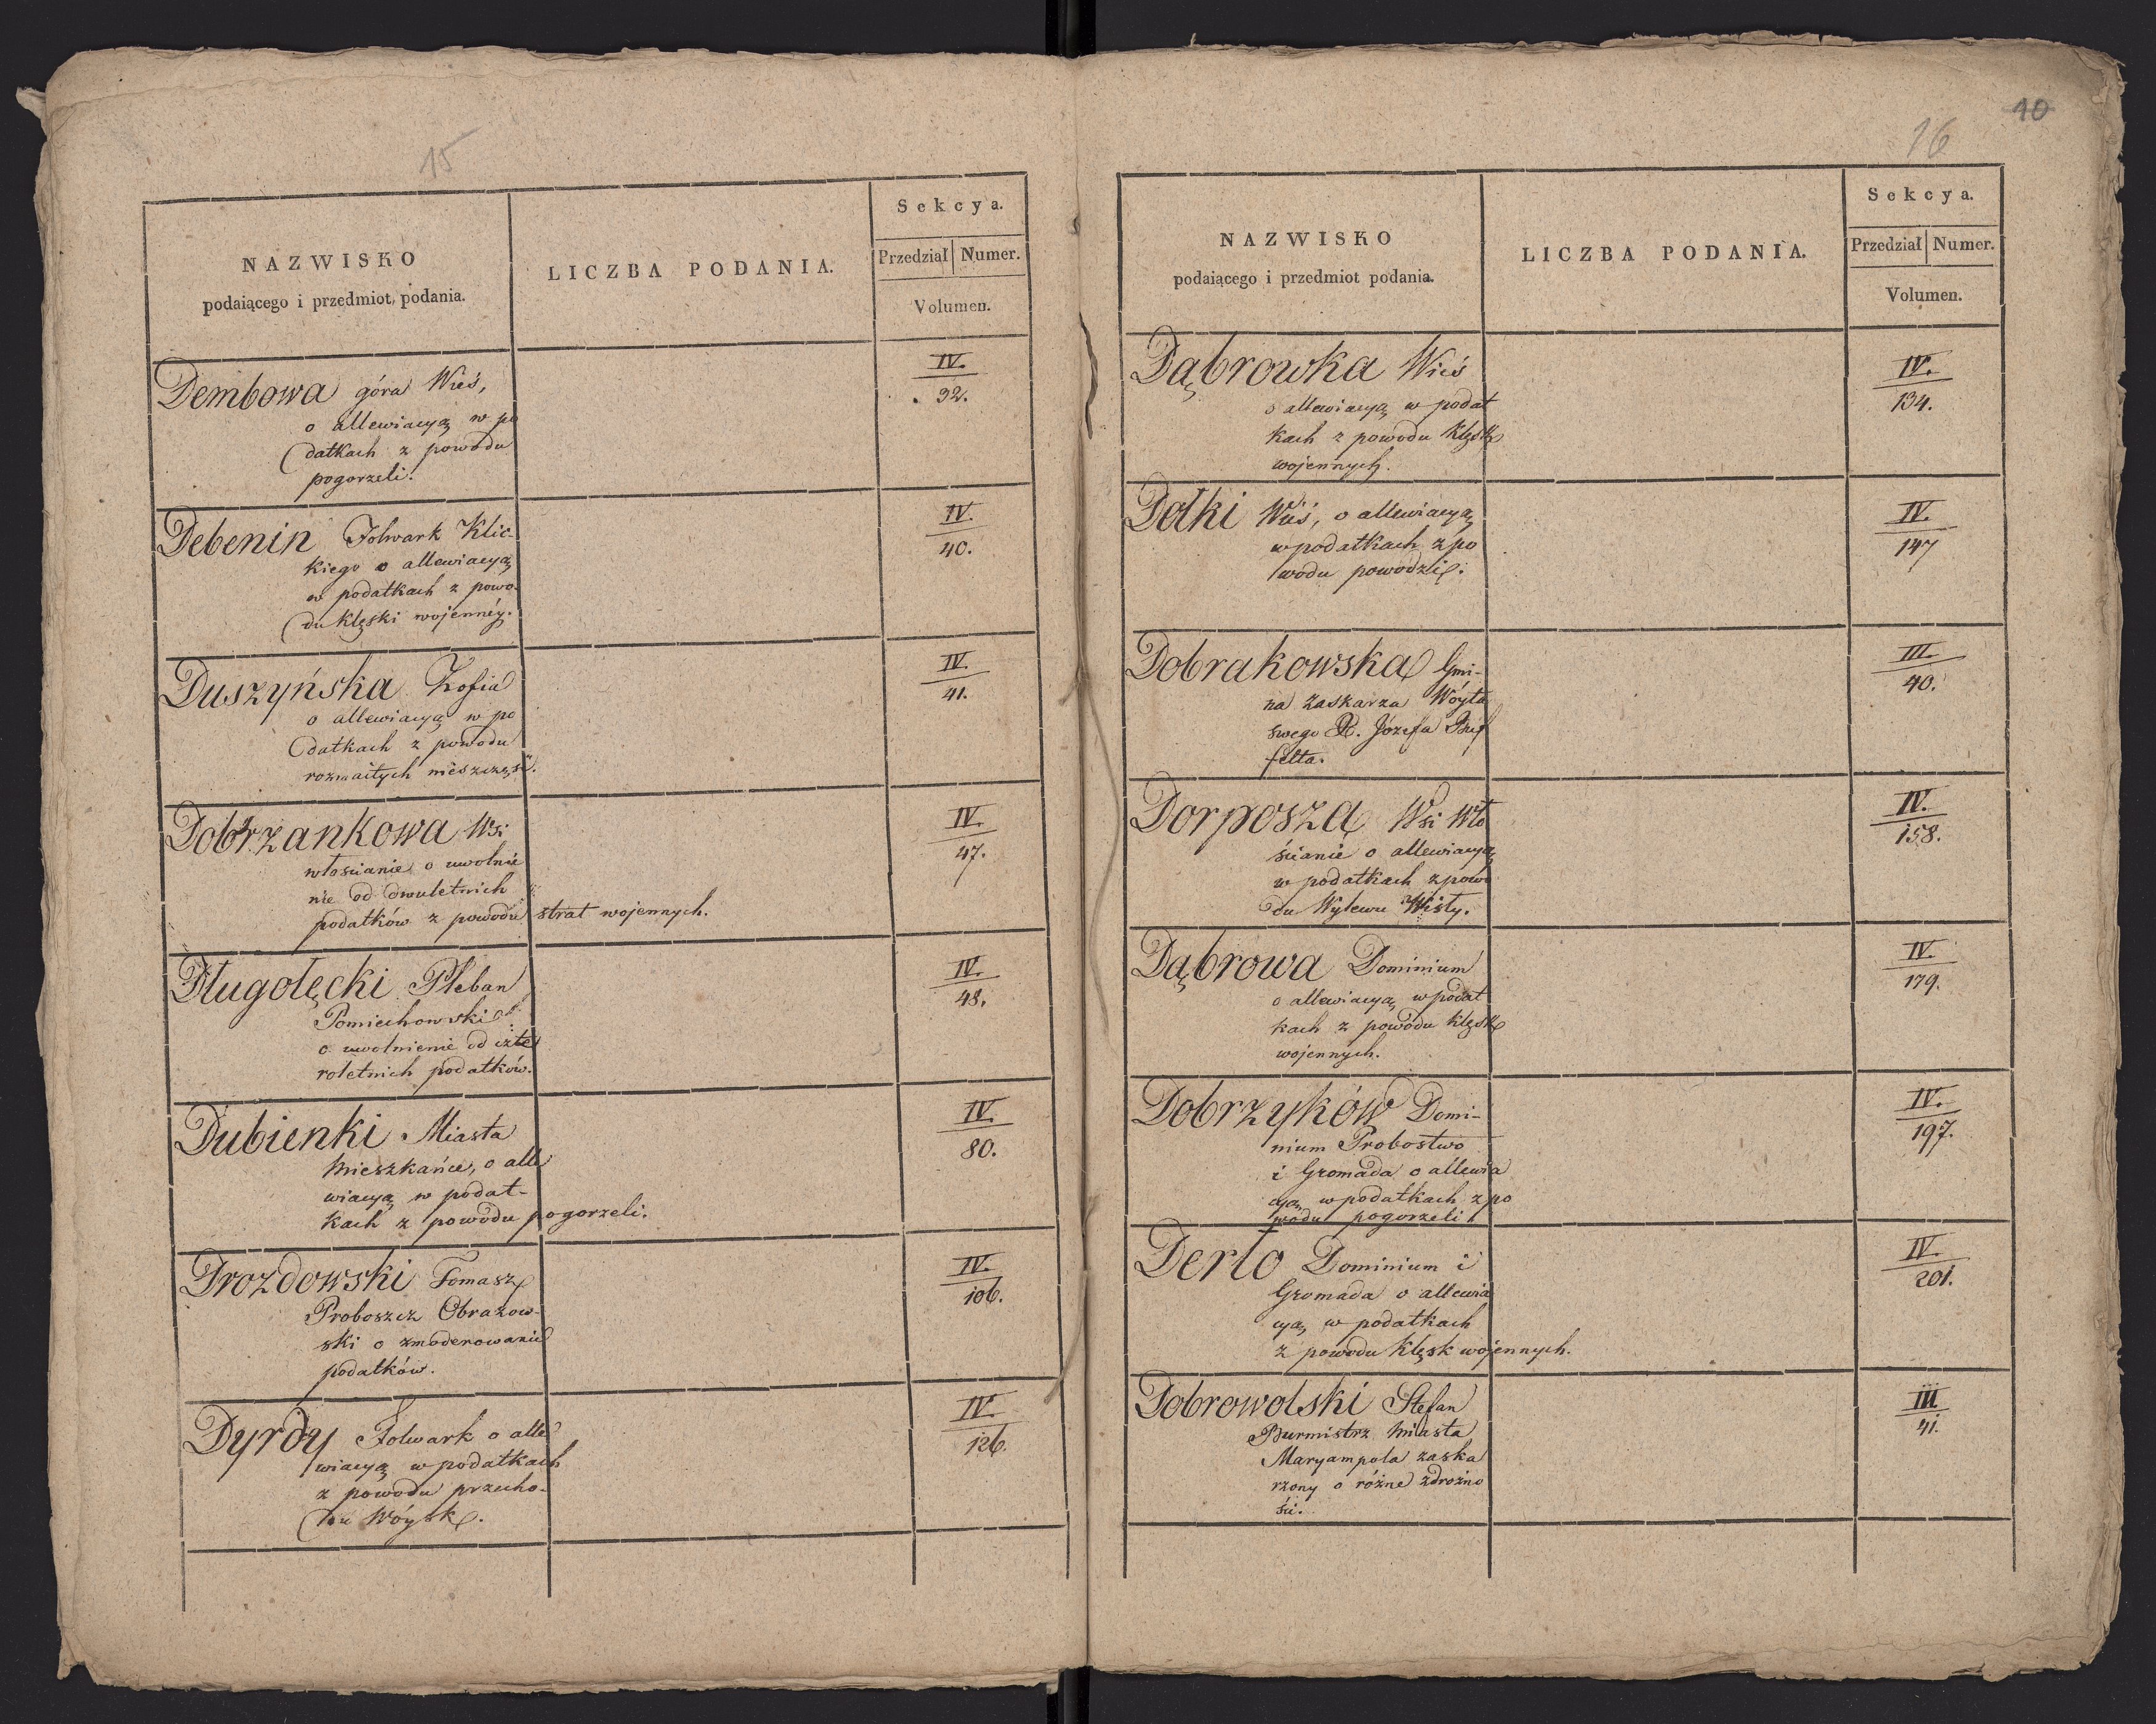 15
NAZWISKO
podaiącego i przedmiot podania.
LICZBA PODANIA.
Sekcya.
Przedział Numer.
Volumen.
Dembowa góra Wieś,
o allewiacyą w po
datkach z powodu
pogorzeli.
IV.
32.
Debenin Folwark Klic-
kiego o allewiacyą
w podatkach z powo-
du Klęski wojennéy.
IV.
40.
Duszyńska Zofia
o allewiacyą w po
datkach z powodu
rozmaitych nieszczęść.
IV.
41.
Dobrzankowa Wsi
włościanie o uwolnie
nie od dwuletnich
podatków z powodu strat wojennych.
IV.
47.
Długołęcki Pleban
Pomiechowski
o uwolnienie od czte
roletnich podatków.
IV.
48.
Dubienki Miasta
Mieszkańce, o alle
wiacyą w podat-
kach z powodu pogorzeli.
IV.
80.
Drozdowski Tomasz
Proboszcz Obrazow-
ski o zmoderowanie
podatków.
IV.
106.
Dyrdy Folwark o alle
wiacyą w podatkach
z powodu przecho-
du Wóysk.
IV.
126.
10
16
NAZWISKO
podaiącego i przedmiot podania.
LICZBA PODANIA.
Sekcya.
Przedział Numer.
Volumen.
Dąbrowka Wieś
o allewiacyą w podat
kach z powodu Klęsk
wojennych.
IV.
134.
Dołki Wieś, o allewiacyą
w podatkach z po
wodu powodzi.
IV.
147
Dobrakowska Gmi-
na zaskarza Wóyta
swego X. Józefa
felta.
III.
40.
Dorposza Wsi Wło
ścianie o allewiacyą
w podatkach z powo
du Wylewu Wisły.
IV.
158.
Dąbrowa Dominium
o allewiacyą w podat
kach z powodu klęsk
wojennych.
IV.
179.
Dobrzyków Domi-
nium Probostwo
i Gromada o allewia
cyą w podatkach z po
wodu pogorzeli
IV.
197.
Derło Dominium i
Gromada o allewia
cyą w podatkach
z powodu Klęsk wojennych.
IV.
201.
Dobrowolski Stefan
Burmistrz Miasta
Maryampola zaska
rzony o różne zdrożno
ści.
III
41.